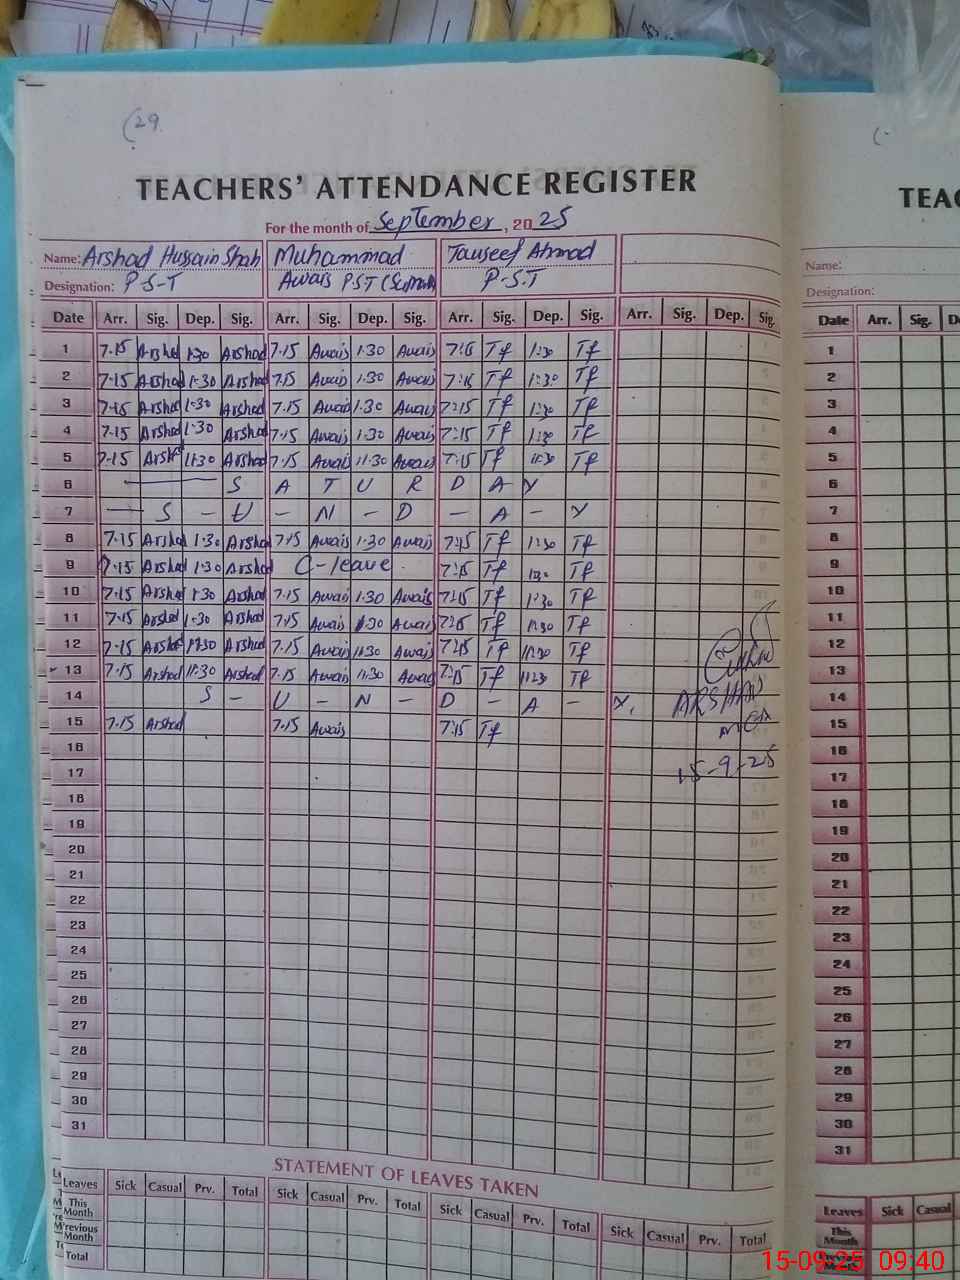 (29
TEACHERS' ATTENDANCE REGISTER
For the month of September, 2025
Name: Arshad Hussain Shah Muhammad Tauseef Ahmad
Designation: P-S-T Awais P.S.T P-S.T
Date Arr. Sig. Dep. Sig. Arr. Sig. Dep. Sig. Arr. Sig. Dep. Sig. Arr. Sig. Dep. Sig.
1 7.15 Arshad 1:30 Arshad 7.15 Awais 1.30 Awais 7:15 Tf 1:30 Tf
2 7.15 Arshad 1.30 Arshad 7.15 Awais 1.30 Awais 7:15 Tf 1:30 Tf
3 7.15 Arshad 1.30 Arshad 7.15 Awais 1.30 Awais 7:15 Tf 1:30 Tf
4 7.15 Arshad 1.30 Arshad 7.15 Awais 1.30 Awais 7:15 Tf 1:30 Tf
5 7.15 Arshad 11.30 Arshad 7.15 Awais 11.30 Awais 7:15 Tf 11:30 Tf
6 S A T U R D A Y
7 — S — U — N — D — A — Y
8 7.15 Arshad 1.30 Arshad 7.15 Awais 1.30 Awais 7:15 Tf 1:30 Tf
9 7.15 Arshad 1.30 Arshad C-leave 7:15 Tf 1:30 Tf
10 7.15 Arshad 1.30 Arshad 7.15 Awais 1.30 Awais 7:15 Tf 1:30 Tf
11 7.15 Arshad 1.30 Arshad 7.15 Awais 1.30 Awais 7:15 Tf 1:30 Tf
12 7.15 Arshad 11.30 Arshad 7.15 Awais 11.30 Awais 7:15 Tf 11:30 Tf
13 7.15 Arshad 11.30 Arshad 7.15 Awais 11.30 Awais 7:15 Tf 11:30 Tf
14 S — U — N — D — A — Y. ARSHAD
15 7.15 Arshad 7.15 Awais 7:15 Tf MEA
16
15-9-25
17
18
19
20
21
22
23
24
25
26
27
28
29
30
31
STATEMENT OF LEAVES TAKEN
Leaves Sick Casual Prv. Total Sick Casual Prv. Total Sick Casual Prv. Total Sick Casual Prv. Total
This Month
Previous Month
Total
TEAC
Name:
Designation:
Date Arr. Sig. D
1
2
3
4
5
6
7
8
9
10
11
12
13
14
15
16
17
18
19
20
21
22
23
24
25
26
27
28
29
30
31
Leaves Sick Casual
This Month
Previous Month
15-09-25 09:40